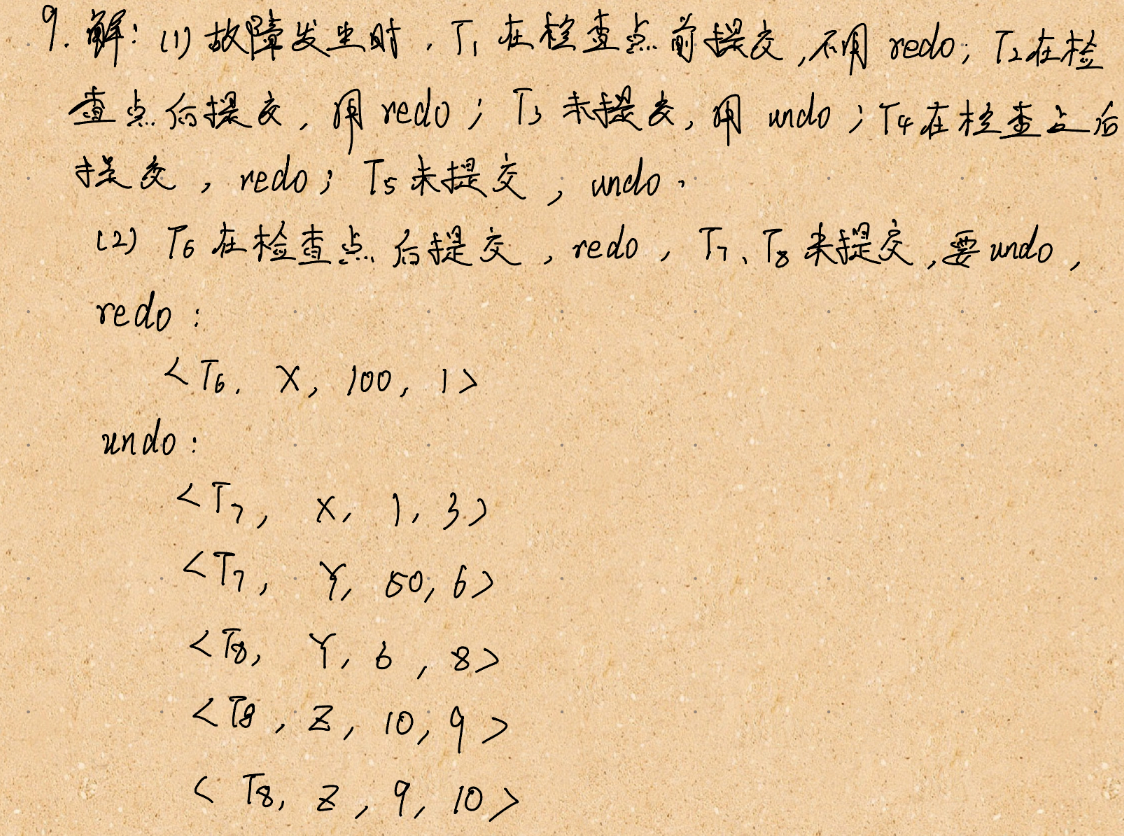 9. 解: (1) 故障发生时, T₁ 在检查点前提交, 不用 redo; T₂在检
查点后提交, 用 redo; T₃ 未提交, 用 undo; T₄在检查点后
提交, redo; T₅未提交, undo.
(2) T₆在检查点后提交, redo, T₇、T₈未提交, 要undo,
redo:
<T₆, X, 100, 1>
undo:
<T₇, X, 1, 3>
<T₇, Y, 50, 6>
<T₈, Y, 6, 8>
<T₈, Z, 10, 9>
<T₈, Z, 9, 10>